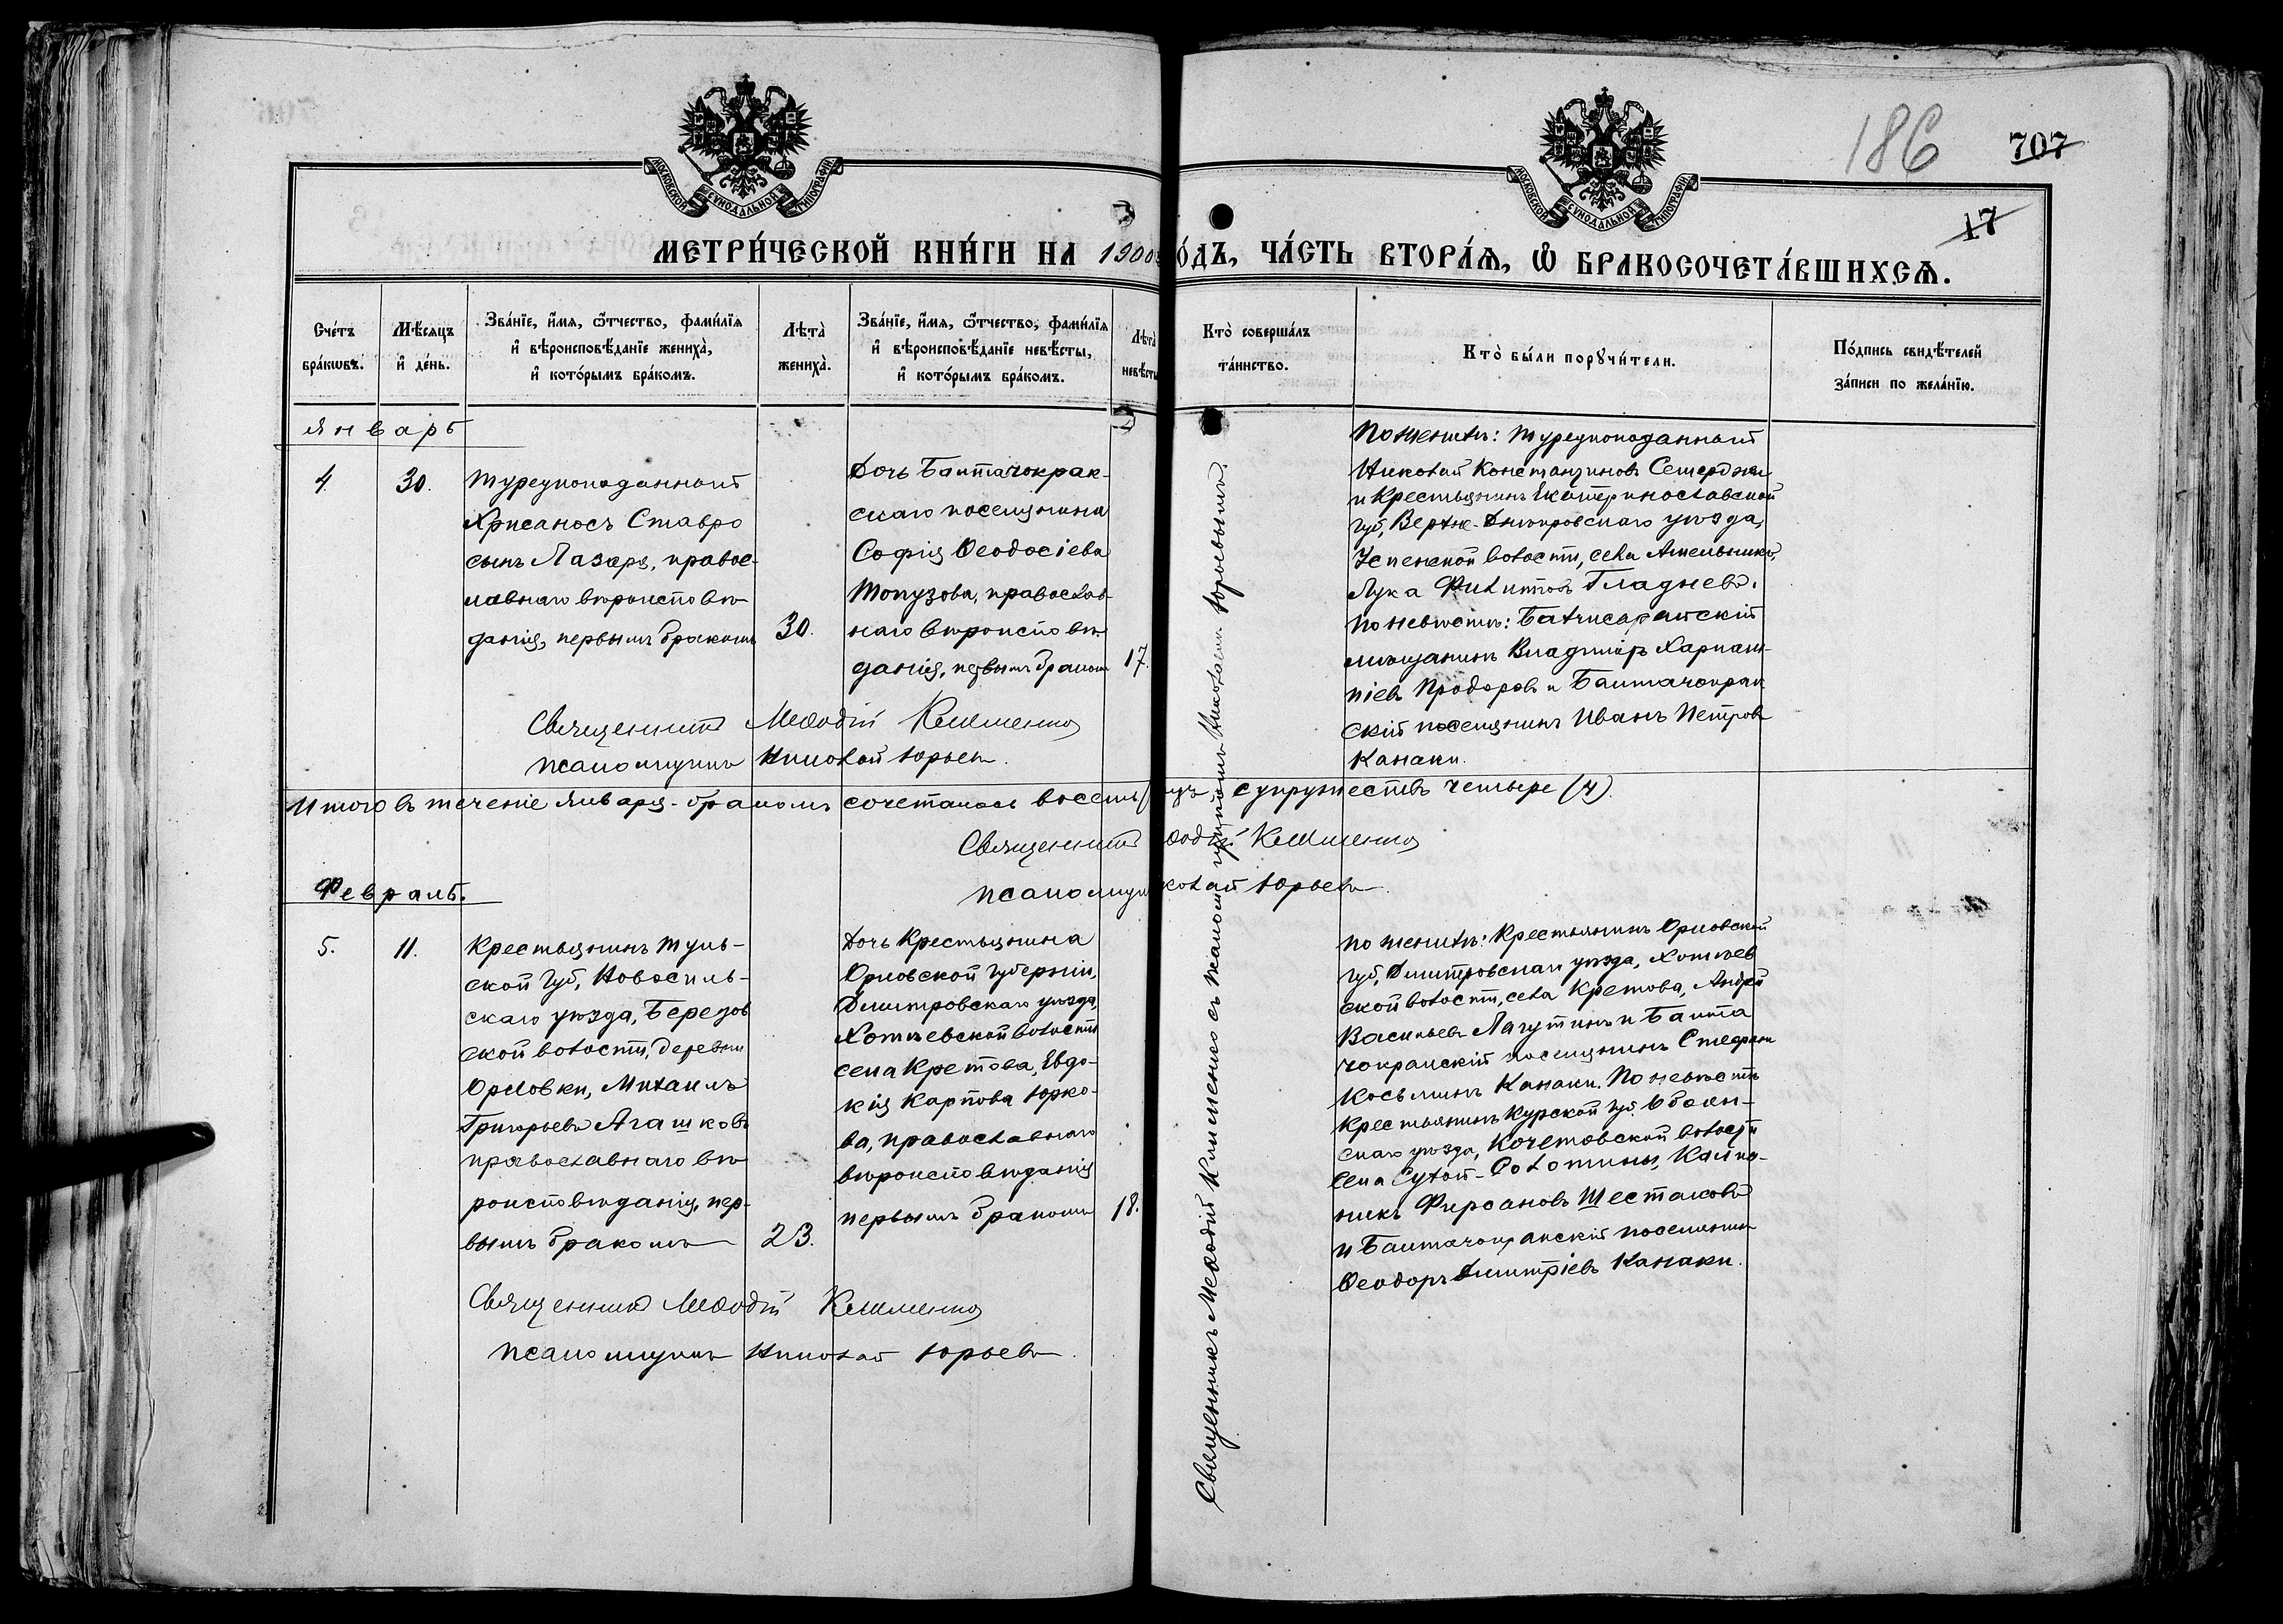 186
707
17
МОСКОВСКОЙ СѴНОДАЛЬНОЙ ТИПОГРАФІИ
МОСКОВСКОЙ СѴНОДАЛЬНОЙ ТИПОГРАФІИ
МЕТРИ́ЧЕСКОЙ КНИ́ГИ НА 1900 го́дъ, ЧА́СТЬ ВТОРА́Ѧ, Ѡ҆ БРАКОСОЧЕТА́ВШИХСѦ.
Сче́тъ
бра́кѡвъ.
Мѣ́сѧцъ
и҆ де́нь.
Зва́нїе, и҆́мѧ, ѻ҆́тчество, фами́лїѧ
и҆ вѣроисповѣ́данїе жениха̀,
и҆ кото́рымъ бра́комъ.
Лѣта̀
жениха̀.
Зва́нїе, и҆́мѧ, ѻ҆́тчество, фами́лїѧ
и҆ вѣроисповѣ́данїе невѣ́сты,
и҆ кото́рымъ бра́комъ.
Лѣта̀
невѣ́сты
Кто̀ соверша́лъ
та́инство.
Кто̀ бы́ли порꙋчи́тели.
По́дпись свидѣ́телей
за́писи по жела́нїю.
Январь
4
30.
Турецкоподанный
Хрисаносъ Ставро
сынъ Лазаря, правос-
лавнаго вѣроисповѣ-
данія, первымъ бракомъ
30.
Дочь Баптачокрак-
скаго поселянина
Софія Ѳеодосіева
Топузова, православ-
наго вѣроисповѣ-
данія, первымъ бракомъ
17.
По женихѣ: турецкоподанный
Николай Константиновъ Семерджи
и Крестьянинъ Екатеринославской
губ, Верхне-Днѣпровскаго уѣзда,
Успенской волости, села
Лука Филиповъ Гладневъ.
По невѣстѣ: Бахчисарайскій
мѣщанинъ Владиміръ Харлам-
піевъ Продоровъ и Баптачокрак
скій поселянинъ Иванъ Петровъ
Канаки.
Священникъ Меѳодій Клименко
псаломщикъ Николай Юрьевъ.
Итого въ теченіе Января - бракомъ сочеталось восемь лицъ супружествъ четыре (4).
Священникъ Меѳодій Клименко
псаломщикъ Николай Юрьевъ
Февраль.
5.
11.
Крестьянинъ туль-
ской губ, Новосиль-
скаго уѣзда, Березов
ской волости, деревни
Орловки, Михаилъ
Григорьевъ Агашковъ
православнаго вѣ-
роисповѣданія, пер-
вымъ бракомъ
23.
Дочь Крестьянина
Орловской губерніи,
Дмитровскаго уѣзда,
Хотѣевской волости
села Кретова, Евдо-
кія Карпова Юрко-
ва, православнаго
вѣроисповѣданія
первымъ бракомъ
18.
По женихѣ: Крестьянинъ Орловской
губ, Дмитровскаго уѣзда, Хотѣев
ской волости, села Кретова, Андрей
Васильевъ Лагутинъ и Баптa
чокракскій поселянинъ Стефанъ
Косьминъ Канаки. По невѣстѣ
Крестьянинъ Курской губ. Обоян-
скаго уѣзда, Кочетовской волости
села Сухой-Солотины,
Фирсановъ Шестаковъ
и Баптачокракскій поселянинъ
Ѳеодоръ Дмитріевъ Канаки.
Священникъ Меѳодій Клименко
псаломщикъ Николай Юрьевъ.
Священникъ Меѳодій Клименко съ псаломщикомъ Николаемъ Юрьевымъ.